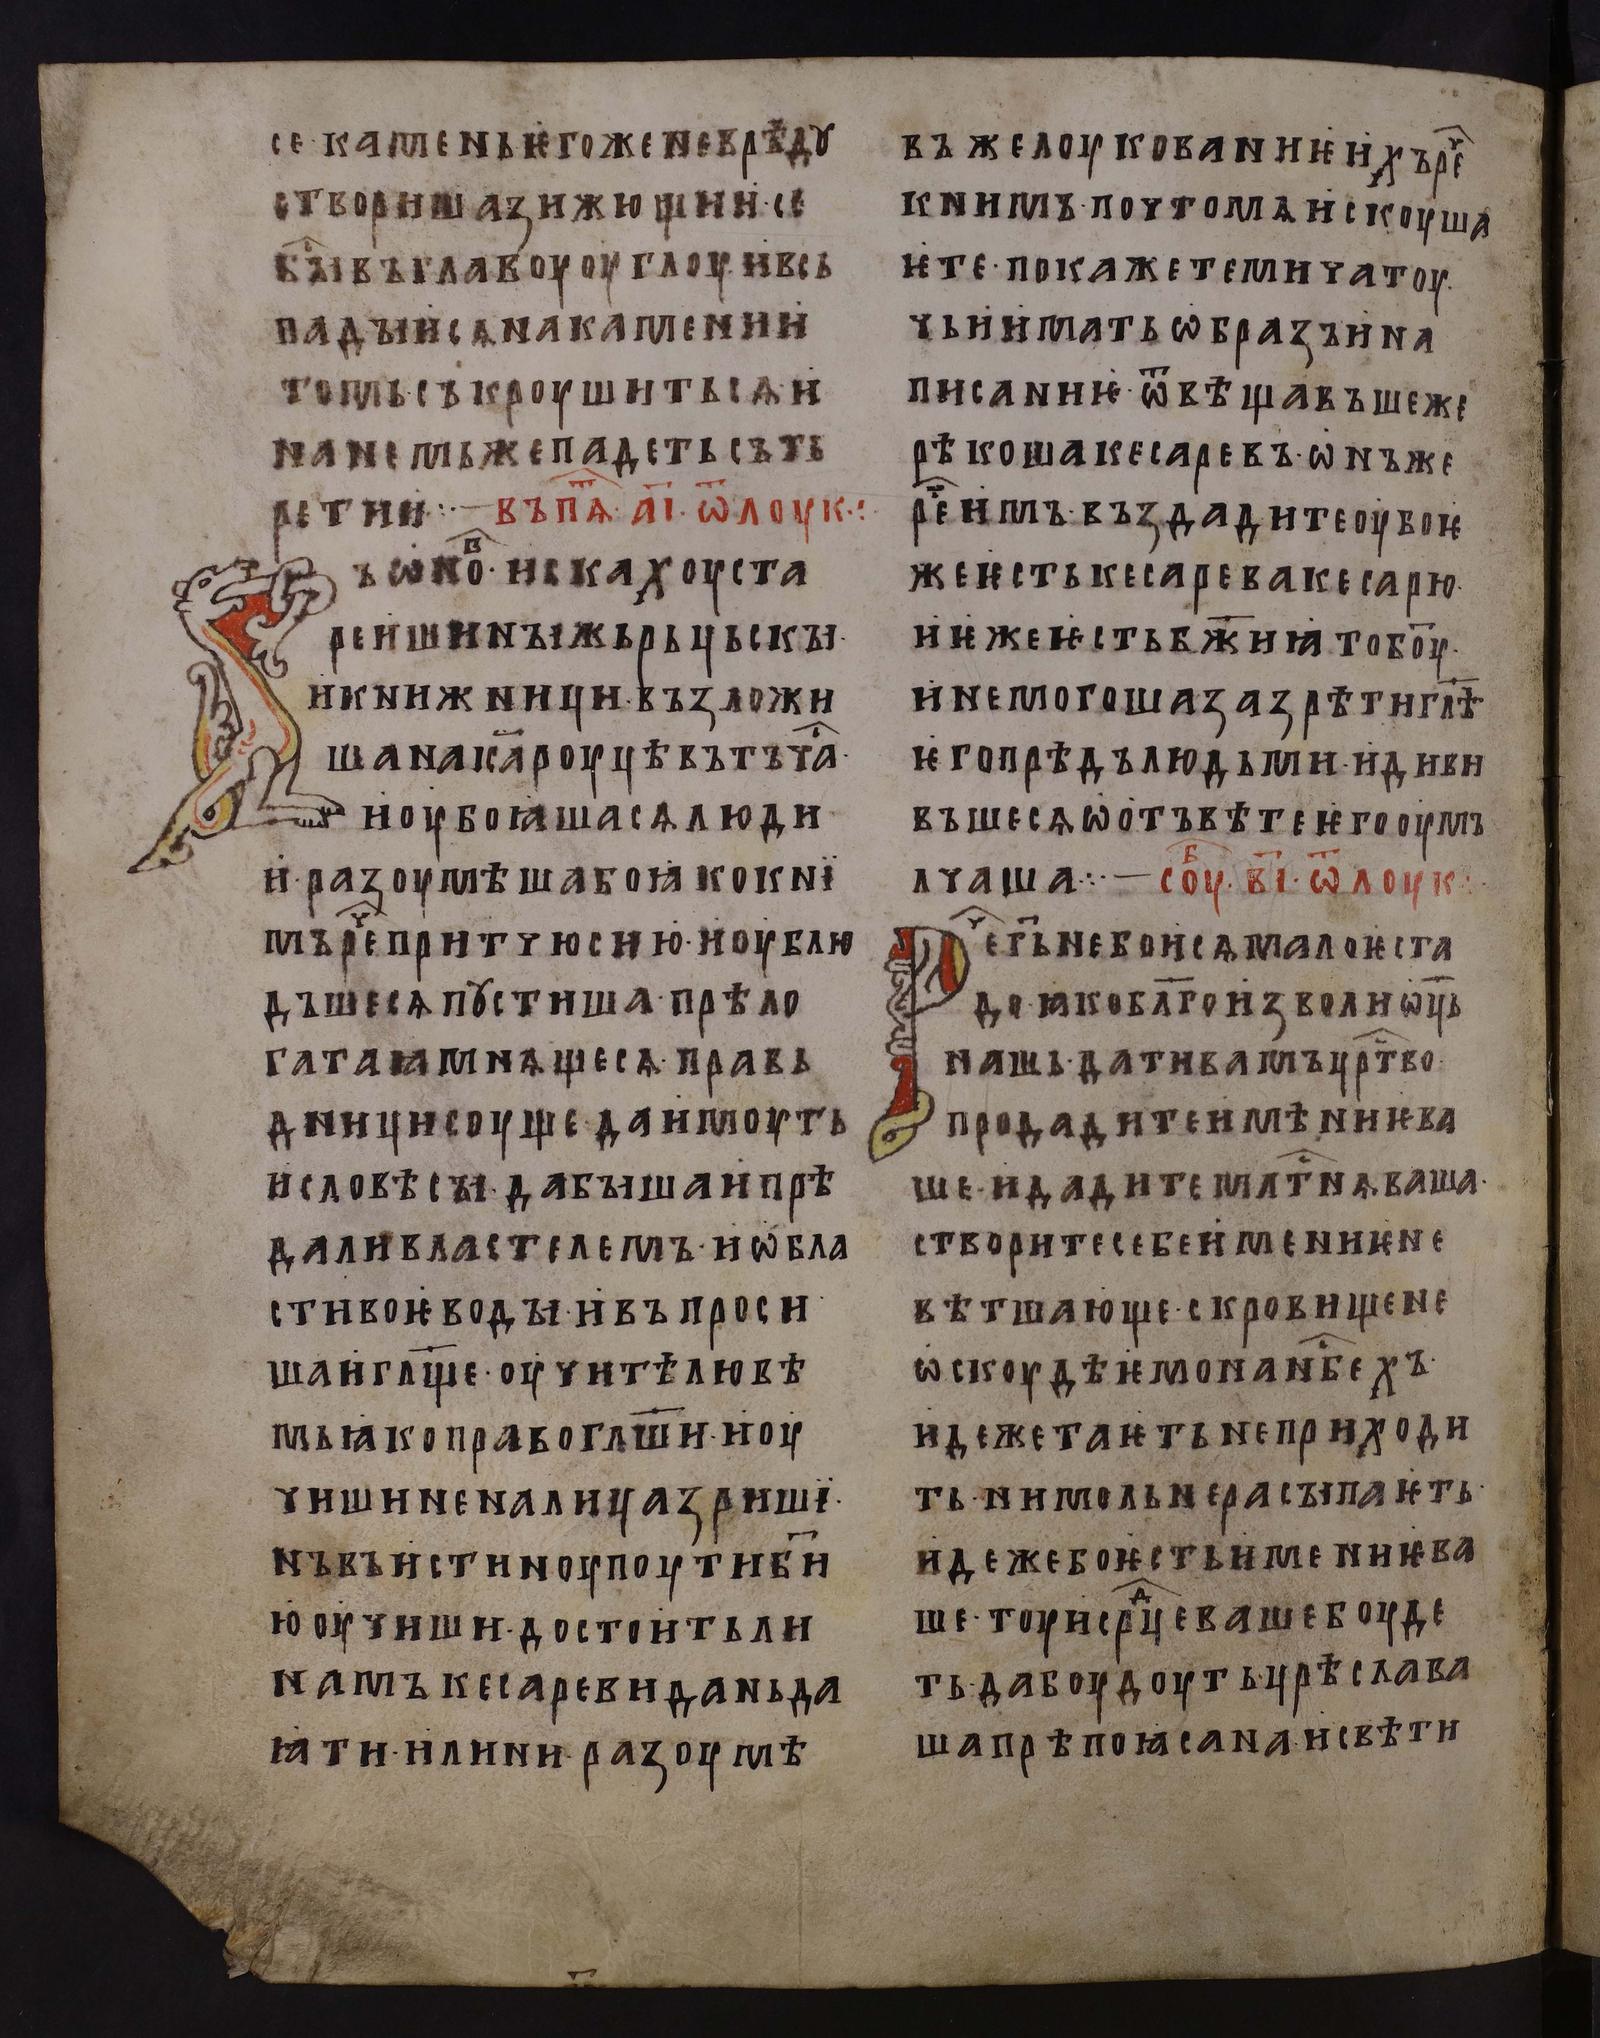 се·каменьѥгоженеврѣдꙋ
створишаꙁижющии·се
бꙑ҇въглавоуоуглоу·ивсь
падꙑисѧнакаменнии
томь·съкроушитьсѧ·и
нанемьжепадетьсъть
ретии·:—въпѧ҃·а҃і·ѿлоук·:
ъѡноⷡ·искахоуста
рѣишинꙑжьрьцьскꙑ·
икнижници·въꙁложи
шанаісⷭ҇ароуцѣвътъчаⷭ҇·
иоубоꙗшасѧлюди
и·раꙁоумѣшабоꙗкокнї
мъреⷱ҇притчюсию·иоублю
дъшесѧпꙋстиша·прѣло
гатаꙗмнѧщесѧ·правь
дницисоуще·даимоуть
исловѣсꙑ·дабꙑшаипрѣ
даливластелемъ·иѡбла
стивоѥводꙑ·ивъпроси
шаигл҃ще·оучитѣлювѣ
мьꙗкоправогл҃ши·иоу
чишиненалицаꙁриші·
нъвъистиноупоутиб҃и
юоучиши·достоитьли
намъкесаревиданьда
ꙗти·илини·раꙁоумѣ
въжелоукованиѥихъреⷱ҇
книмъ·почтомѧискоуша
ѥте·покажетемичатоу·
чьииматьѡбраꙁъина
писаниѥ·ѿвѣщавъшеже
рѣкошакесаревъ·ѡнъже
реⷱ҇имъ·въꙁдадитеоубоѥ
жеѥстькесаревакесарю·
иѥжеѥстьбж҃иꙗтобоу·
инемогошаꙁаꙁрѣтигл҃ѣ
ѥгопрѣдълюдьми·идиви
въшесѧѡотъвѣтеѥгооумъ
лчаша·:—соуⷠ·в҃і·ѿлоук:·
Реⷱ҇г҃ьнебоисѧмалоѥста
до·ꙗкобл҃гоиꙁволиѡц҃ь
нашь·дативамъцр҃тво·
продадитеимѣниѥва
ше·идадитемлⷭ҇тнѧваша·
створитесебеимениѥне
вѣтшающе·скровищене
ѡскоудѣѥмонанб҃ⷭ҇ехъ·
идежетаѥтьнеприходи
ть·нимольнерасꙑпаѥть·
идежебоѥстьимениѥва
ше·тоуисрⷣцевашебоуде
ть·дабоудоутьцрѣслава
шапрѣпоꙗсана·исвѣти